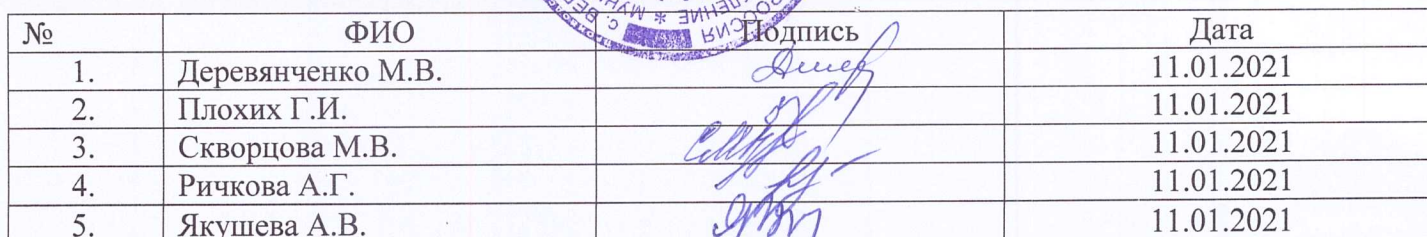 № ФИО Подпись Дата
1. Деревянченко М.В. 11.01.2021
2. Плохих Г.И. 11.01.2021
3. Скворцова М.В. 11.01.2021
4. Ричкова А.Г. 11.01.2021
5. Якушева А.В. 11.01.2021